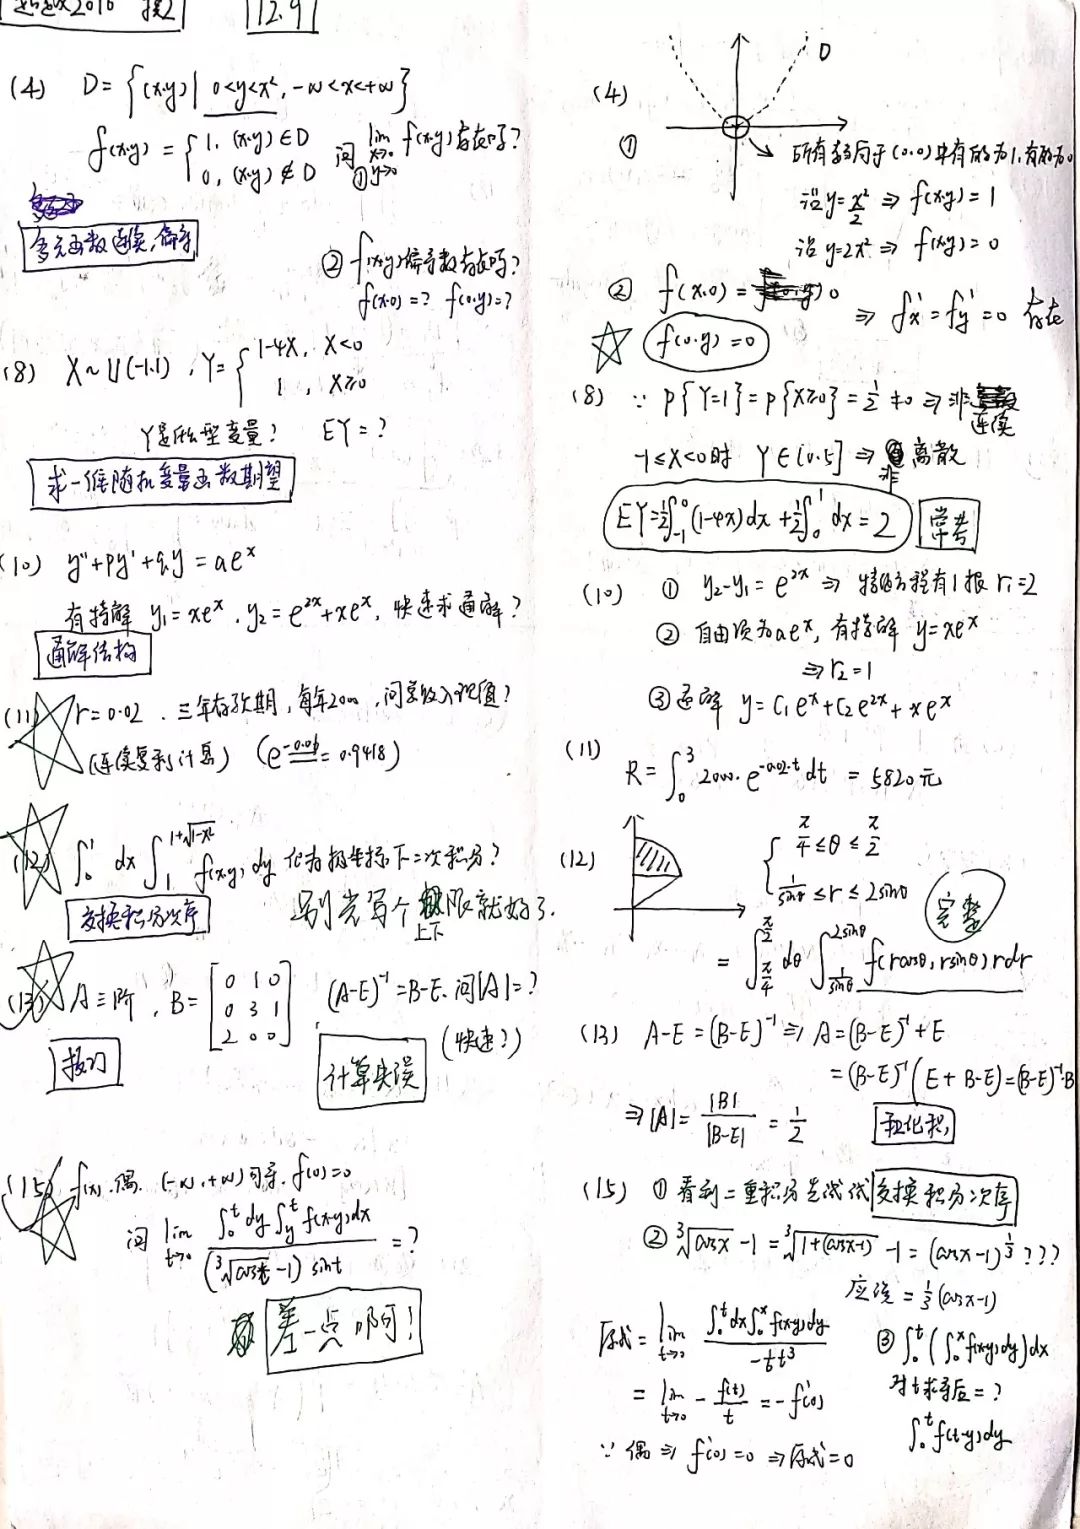 超越2016 模2 12.9
(4) D={(x,y)| 0<y<x², -∞<x<+∞}
f(x,y)={1, (x,y)∈D
0, (x,y)∉D 问 lim x→0 y→0 f(x,y)存在吗?
①
多元函数连续,偏导
② f(x,y)偏导数存在吗?
f(x,0)=? f(0,y)=?
(8) X~U(-1,1), Y={1-4X, X<0
1, X≥0
Y是什么型变量? EY=?
求一维随机变量函数期望
(10) y''+py'+qy=ae^x
有特解 y₁=xe^x, y₂=e^{2x}+xe^x, 快速求通解?
通解结构
(11) r=0.02, 三年存款期, 每年2000, 问总收入现值?
(连续复利计息) (e^{-0.06}=0.9418)
(12) ∫₀¹ dx ∫₁^{1+√(1-x²)} f(x,y) dy 化为极坐标下二次积分?
交换积分次序 别光写个上下限就好了.
(13) A三阶, B=[0 1 0
0 3 1
2 0 0] (A-E)^{-1}=B-E. 问|A|=?
(快速?)
计算失误
(15) f(x)偶. (-∞,+∞)可导. f(0)=0
问 lim t→0 ∫₀^t dy ∫_y^t f(x-y)dx / (∛(cos t)-1) sint =?
差一点啊!
D
(4)
① 所有趋向于(0,0)中有的为1,有的为0
沿y=x²/2 ⇒ f(x,y)=1
沿y=2x² ⇒ f(x,y)=0
② f(x,0)=0
f(0,y)=0 ⇒ f'x=f'y=0 存在
(8) ∵ P{Y=1}=P{X≥0}=1/2≠0 ⇒ 非连续
-1≤X<0时 Y∈[0.5] ⇒ 非离散
EY=½∫_{-1}^0 (1-4x)dx+½∫₀¹ dx=2 常考
(10) ① y₂-y₁=e^{2x} ⇒ 特征方程有1根r₁=2
② 自由项为ae^x, 有特解 y=xe^x
⇒r₂=1
③通解 y=C₁e^x+C₂e^{2x}+xe^x
(11)
R=∫₀³ 2000·e^{-0.02·t}dt = 5820元
(12) {π/4≤θ≤π/2
1/sinθ≤r≤2sinθ
完整
=∫_{π/4}^{π/2} dθ ∫_{1/sinθ}^{2sinθ} f(rcosθ, rsinθ) rdr
(13) A-E=(B-E)^{-1} ⇒ A=(B-E)^{-1}+E
=(B-E)^{-1}(E+B-E)=(B-E)^{-1}·B
⇒|A|=|B|/|B-E|=1/2 和化积
(15) ① 看到二重积分先试试交换积分次序
② ∛cosx -1=∛(1+(cosx-1)) -1=(cosx-1)^{1/3} ???
应该=1/3(cosx-1)
原式=lim t→0 ∫₀^t dx∫₀^x f(x-y)dy / -1/6 t³
③ ∫₀^t(∫₀^x f(x-y)dy)dx
对t求导后=?
∫₀^t f(t-y)dy
=lim t→0 - f(t)/t = -f'(0)
∵偶⇒f'(0)=0⇒原式=0